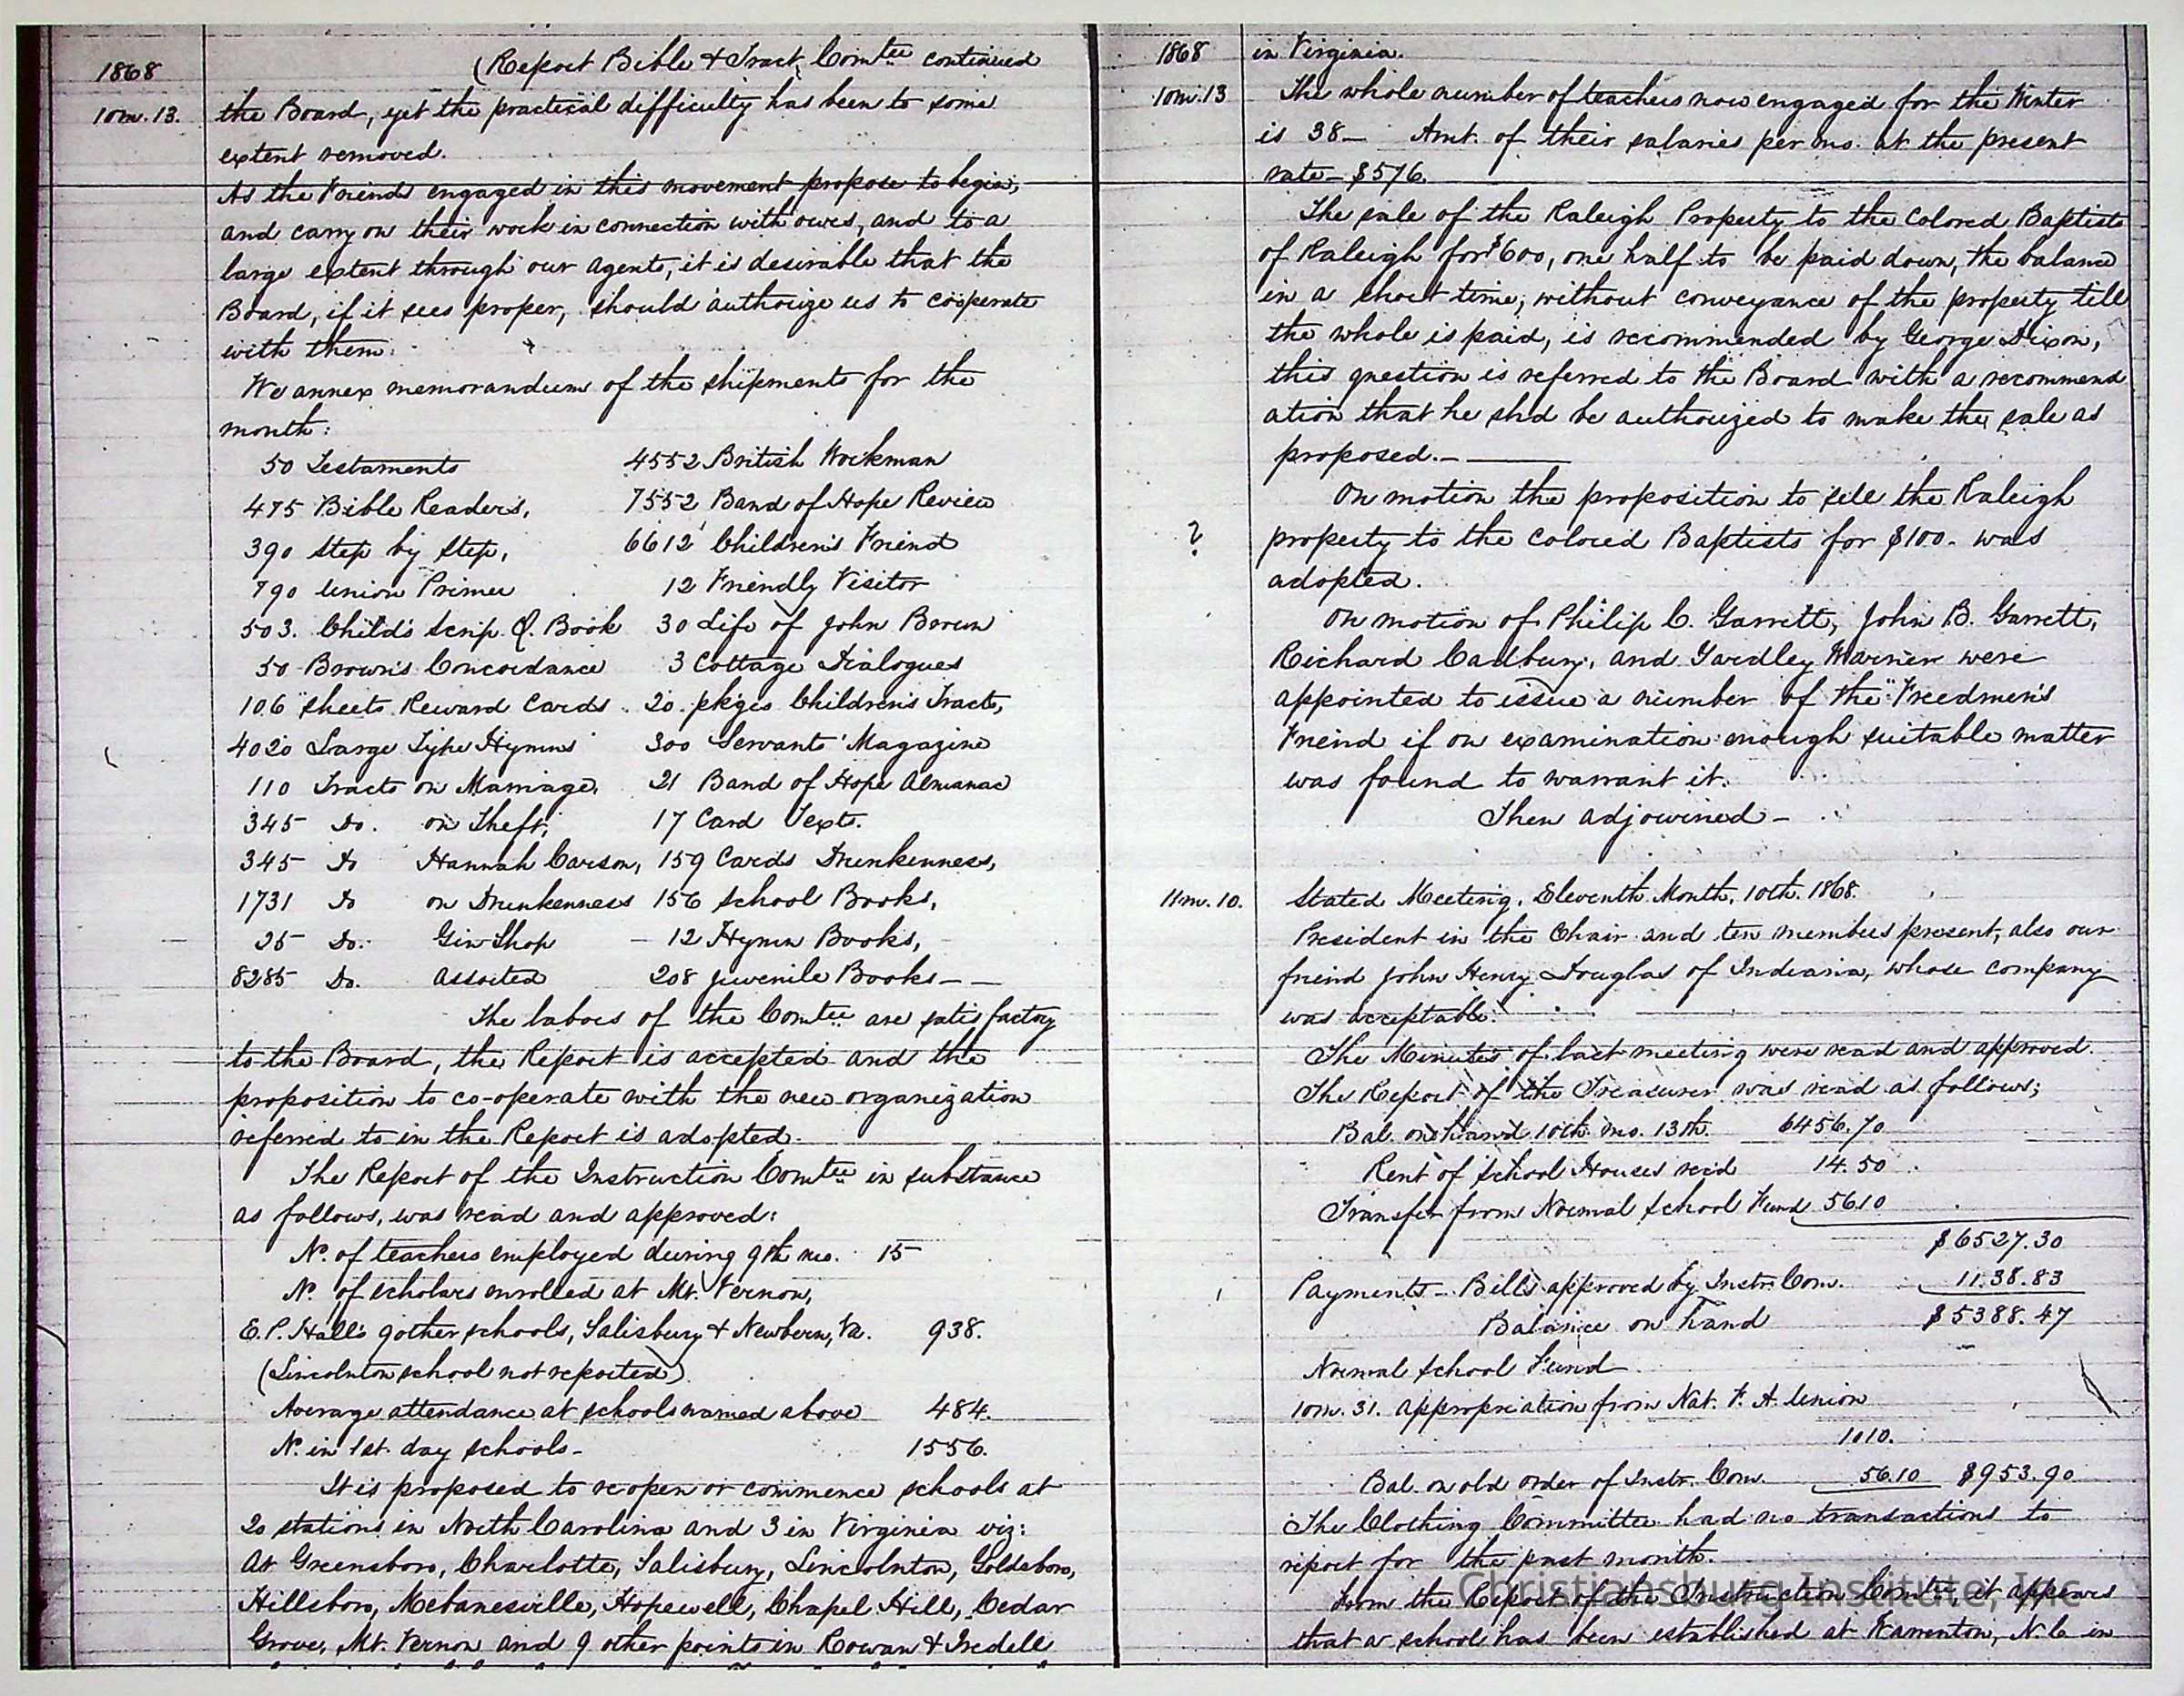 1868
(Report Bible & Tract Comtee continued
10 m. 13.
the Board, yet the practical difficulty has been to some
extent removed.
As the Friends engaged in this movement propose to begin,
and carry on their work in connection with ours, and to a
large extent through our agents, it is desirable that the
Board, if it sees proper, should authorize us to coöperate
with them.
We annex memorandum of the shipments for the
month:
50 Testaments 4552 British Workman
475 Bible Readers, 7552 Band of Hope Review
390 Step by Step, 6612 Children's Friend
790 Union Primer 12 Friendly Visitor
503. Child's Scrip. Q. Book 30 Life of John Brown
50 Brown's Concordance 3 Cottage Dialogues
106 sheets Reward Cards. 20 pkges Children's Tracts,
4020 Large Type Hymns 300 Servants' Magazine
110 Tracts on Marriage, 21 Band of Hope Almanac
345 Do. on Theft, 17 Card Texts.
345 Do Hannah Carson, 159 Cards Drunkenness,
1731 Do on Drunkenness 156 School Books,
25 Do. Gin Shop – 12 Hymn Books,
8285 Do. Assorted 208 Juvenile Books –
The labors of the Comtee are satisfactory
to the Board, the Report is accepted and the
proposition to co-operate with the new organization
referred to in the Report is adopted.
The Report of the Instruction Comtee in substance
as follows, was read and approved:
No. of teachers employed during 9th mo. 15
No. of scholars enrolled at Mt. Vernon,
E.P. Hall's 9 other schools, Salisbury & Newbern, Va. 938.
(Lincolnton school not reported)
Average attendance at schools named above 484.
No. in 1st day schools – 1556.
It is proposed to reopen or commence schools at
20 stations in North Carolina and 3 in Virginia viz:
At Greensboro, Charlotte, Salisbury, Lincolnton, Goldsboro,
Hillsboro, Mebanesville, Hopewell, Chapel Hill, Cedar
Grove, Mt. Vernon and 9 other points in Rowan & Iredell
1868
in Virginia.
10 m. 13
The whole number of teachers now engaged for the Winter
is 38 – Amt. of their salaries per mo. at the present
rate – $576.
The sale of the Raleigh Property to the Colored Baptists
of Raleigh for $600, one half to be paid down, the balance
in a short time, without conveyance of the property till
the whole is paid, is recommended by George Dixon,
this question is referred to the Board with a recommend
ation that he shd be authorized to make the sale as
proposed. –
On motion the proposition to sell the Raleigh
? property to the Colored Baptists for $100. was
adopted.
On motion of Philip C. Garrett, John B. Garrett,
Richard Cadbury, and Yardley Warner were
appointed to issue a number of the "Freedmen's
Friend if on examination enough suitable matter
was found to warrant it.
Then adjourned –
11 m. 10.
Stated Meeting, Eleventh Month, 10th. 1868.
President in the Chair and ten members present, also our
friend John Henry Douglas of Indiana, whose company
was acceptable.
The Minutes of last meeting were read and approved.
The Report of the Treasurer was read as follows;
Bal. on hand 10th mo. 13th. 6456.70
Rent of School Houses recd 14.50
Transfer from Normal School Fund 56.10
$6527.30
Payments – Bills approved by Instr. Com. 11.38.83
Balance on hand $5388.47
Normal School Fund
10 m. 31. appropriation from Nat. F. A. Union
1010.
Bal. on old order of Instr. Com. 56.10 $953.90
The Clothing Committee had no transactions to
report for the past month.
From the Report of the Instruction Comtee it appears
that a school has been established at Warrenton, N.C in
Christiansburg Institute, Inc